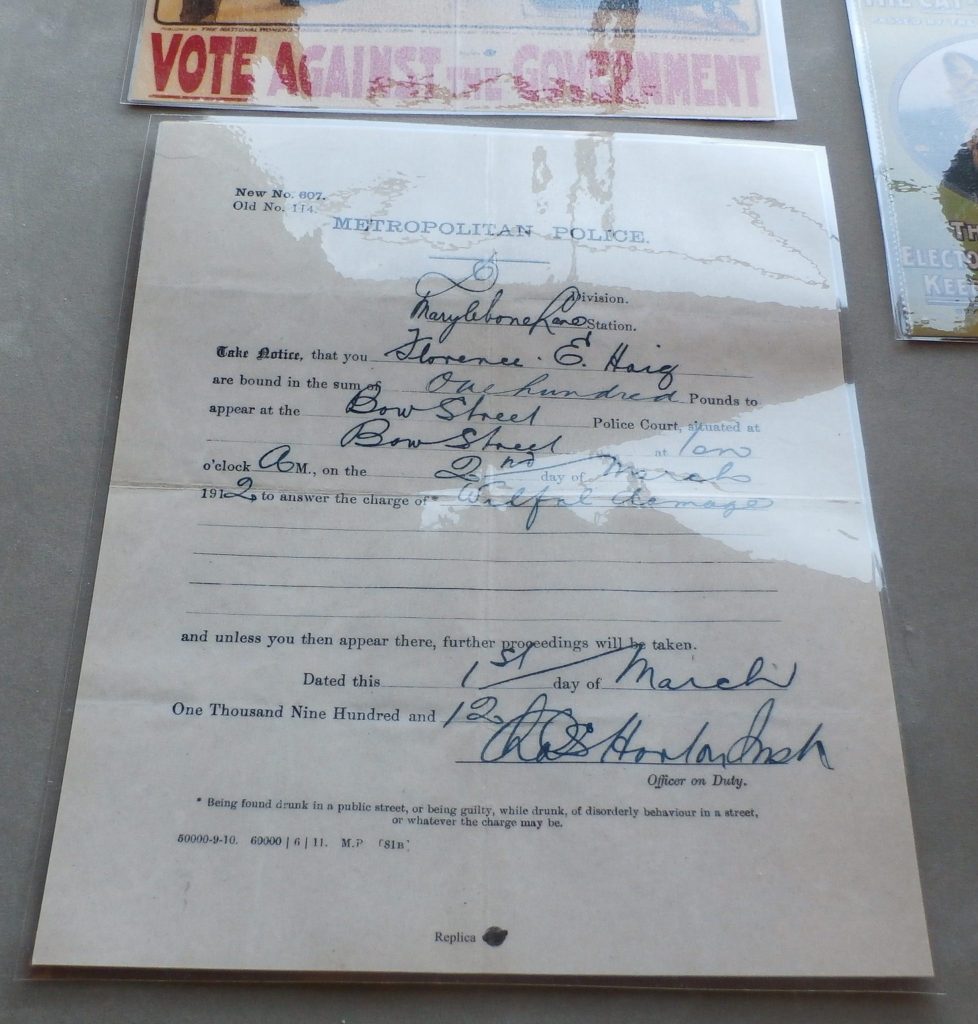 VOTE AGAINST THE GOVERNMENT
New No. 607.
Old No. 114.
METROPOLITAN POLICE.
D Division.
Marylebone Lane Station.
Take Notice, that you Florence. E. Haig
are bound in the sum of One hundred Pounds to
appear at the Bow Street Police Court, situated at
Bow Street at Ten
o'clock A M., on the 2nd day of March
1912 to answer the charge of* Wilful damage
and unless you then appear there, further proceedings will be taken.
Dated this 1st day of March
One Thousand Nine Hundred and 12
Officer on Duty.
* Being found drunk in a public street, or being guilty, while drunk, of disorderly behaviour in a street,
or whatever the charge may be.
50000-9-10. 60000 | 6 | 11. M.P [S1B]
Replica
THE CAT
PASSED BY THE
TH
ELECTO
KEE